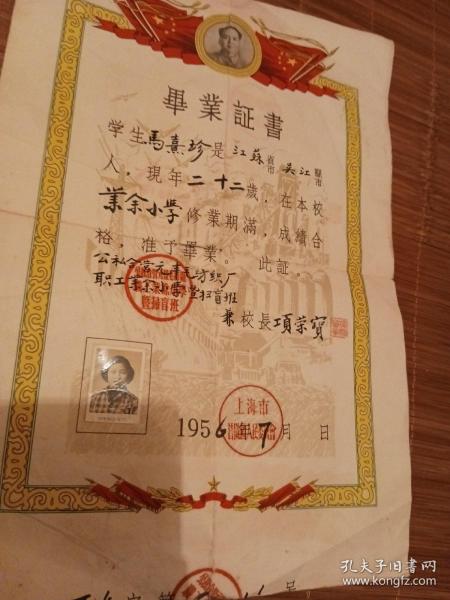 畢業証書
学生馬熹珍是江蘇省市吴江縣市
人，現年二十二歲，在本校
業余小學修業期滿，成績合
格，准予畢業。此証。
公私合营元豐毛纺织厂
职工業余小學暨扫盲班
兼校長項荣寶
暨掃盲班
上海市
1956年7月 日
字第 号
孔夫子旧书网
www.kongfz.com